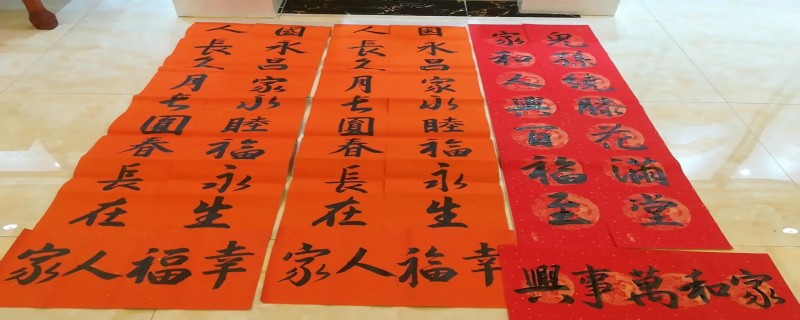 国永昌家永睦福永生
人長久月長圓春長在
幸福人家
国永昌家永睦福永生
人長久月長圓春長在
幸福人家
兒孫繞膝花滿堂
家和人興百福至
家和萬事興